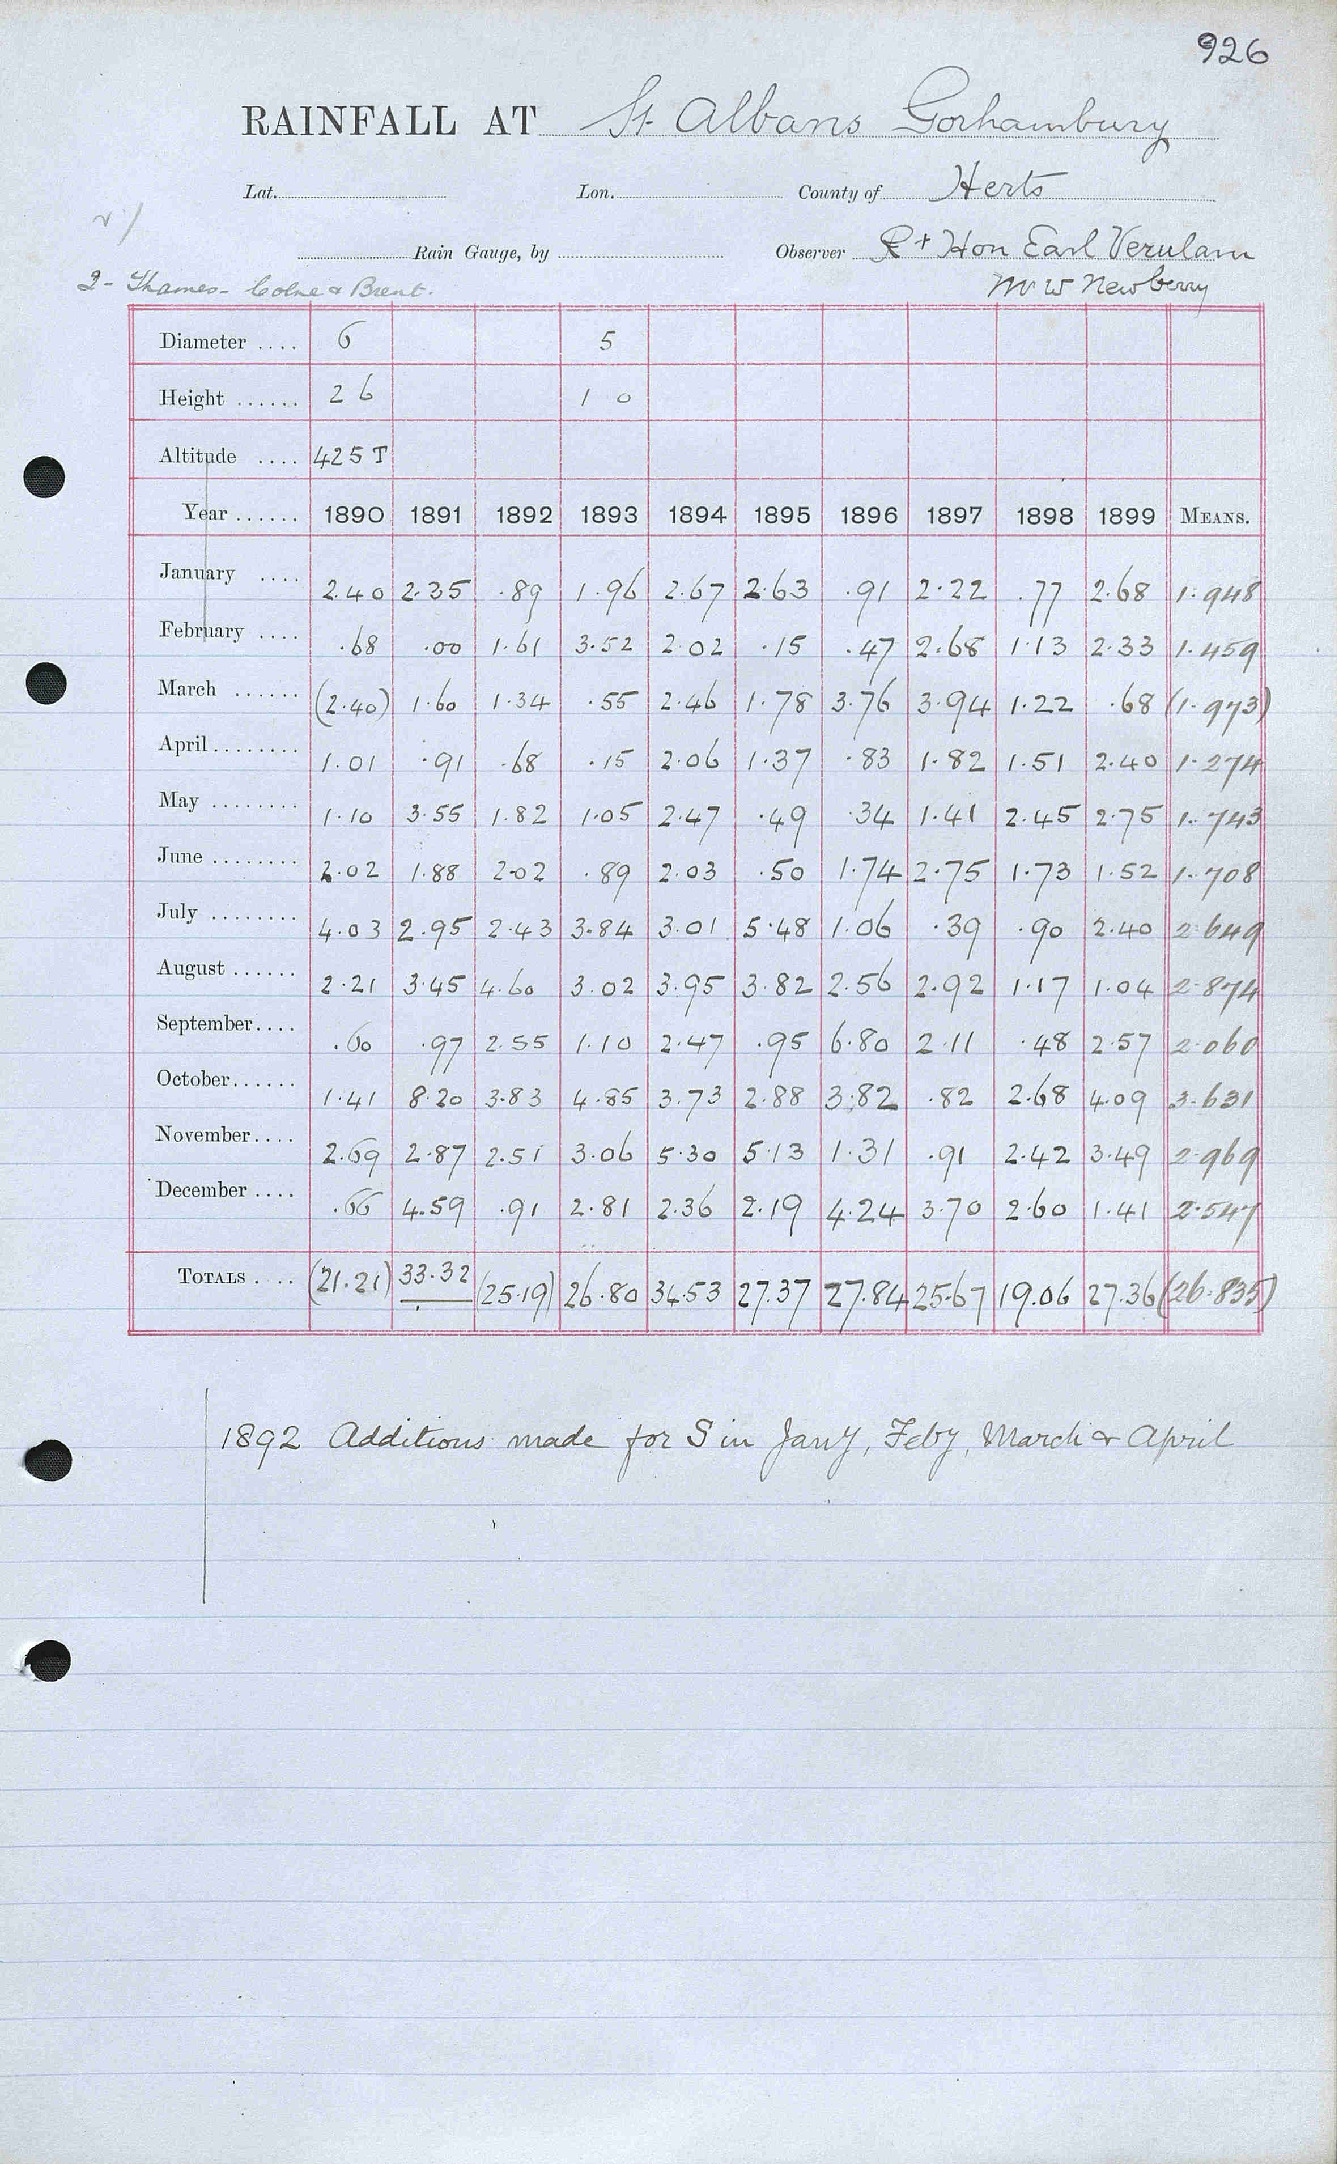 926
RAINFALL AT St Albans Gorhambury
Lat. Lon. County of Herts
Rain Gauge, by Observer Rt Hon Earl Verulam
2 - Thames - Colne & Brent. Mr W Newberry
Diameter .... 6 5
Height ...... 2 6 1 0
Altitude .... 425 T
Year ...... 1890 1891 1892 1893 1894 1895 1896 1897 1898 1899 MEANS.
January .... 2.40 2.35 .89 1.96 2.67 2.63 .91 2.22 .77 2.68 1.948
February .... .68 .00 1.61 3.52 2.02 .15 .47 2.68 1.13 2.33 1.459
March ...... (2.40) 1.60 1.34 .55 2.46 1.78 3.76 3.94 1.22 .68 (1.973)
April........ 1.01 .91 .68 .15 2.06 1.37 .83 1.82 1.51 2.40 1.274
May ........ 1.10 3.55 1.82 1.05 2.47 .49 .34 1.41 2.45 2.75 1.743
June ........ 2.02 1.88 2.02 .89 2.03 .50 1.74 2.75 1.73 1.52 1.708
July ........ 4.03 2.95 2.43 3.84 3.01 5.48 1.06 .39 .90 2.40 2.649
August ...... 2.21 3.45 4.60 3.02 3.95 3.82 2.56 2.92 1.17 1.04 2.874
September.... .60 .97 2.55 1.10 2.47 .95 6.80 2.11 .48 2.57 2.060
October...... 1.41 8.20 3.83 4.85 3.73 2.88 3.82 .82 2.68 4.09 3.631
November.... 2.69 2.87 2.51 3.06 5.30 5.13 1.31 .91 2.42 3.49 2.969
December .... .66 4.59 .91 2.81 2.36 2.19 4.24 3.70 2.60 1.41 2.547
TOTALS .... (21.21) 33.32 (25.19) 26.80 34.53 27.37 27.84 25.67 19.06 27.36 (26.835)
1892 Additions made for S in Jany, Feby, March & April